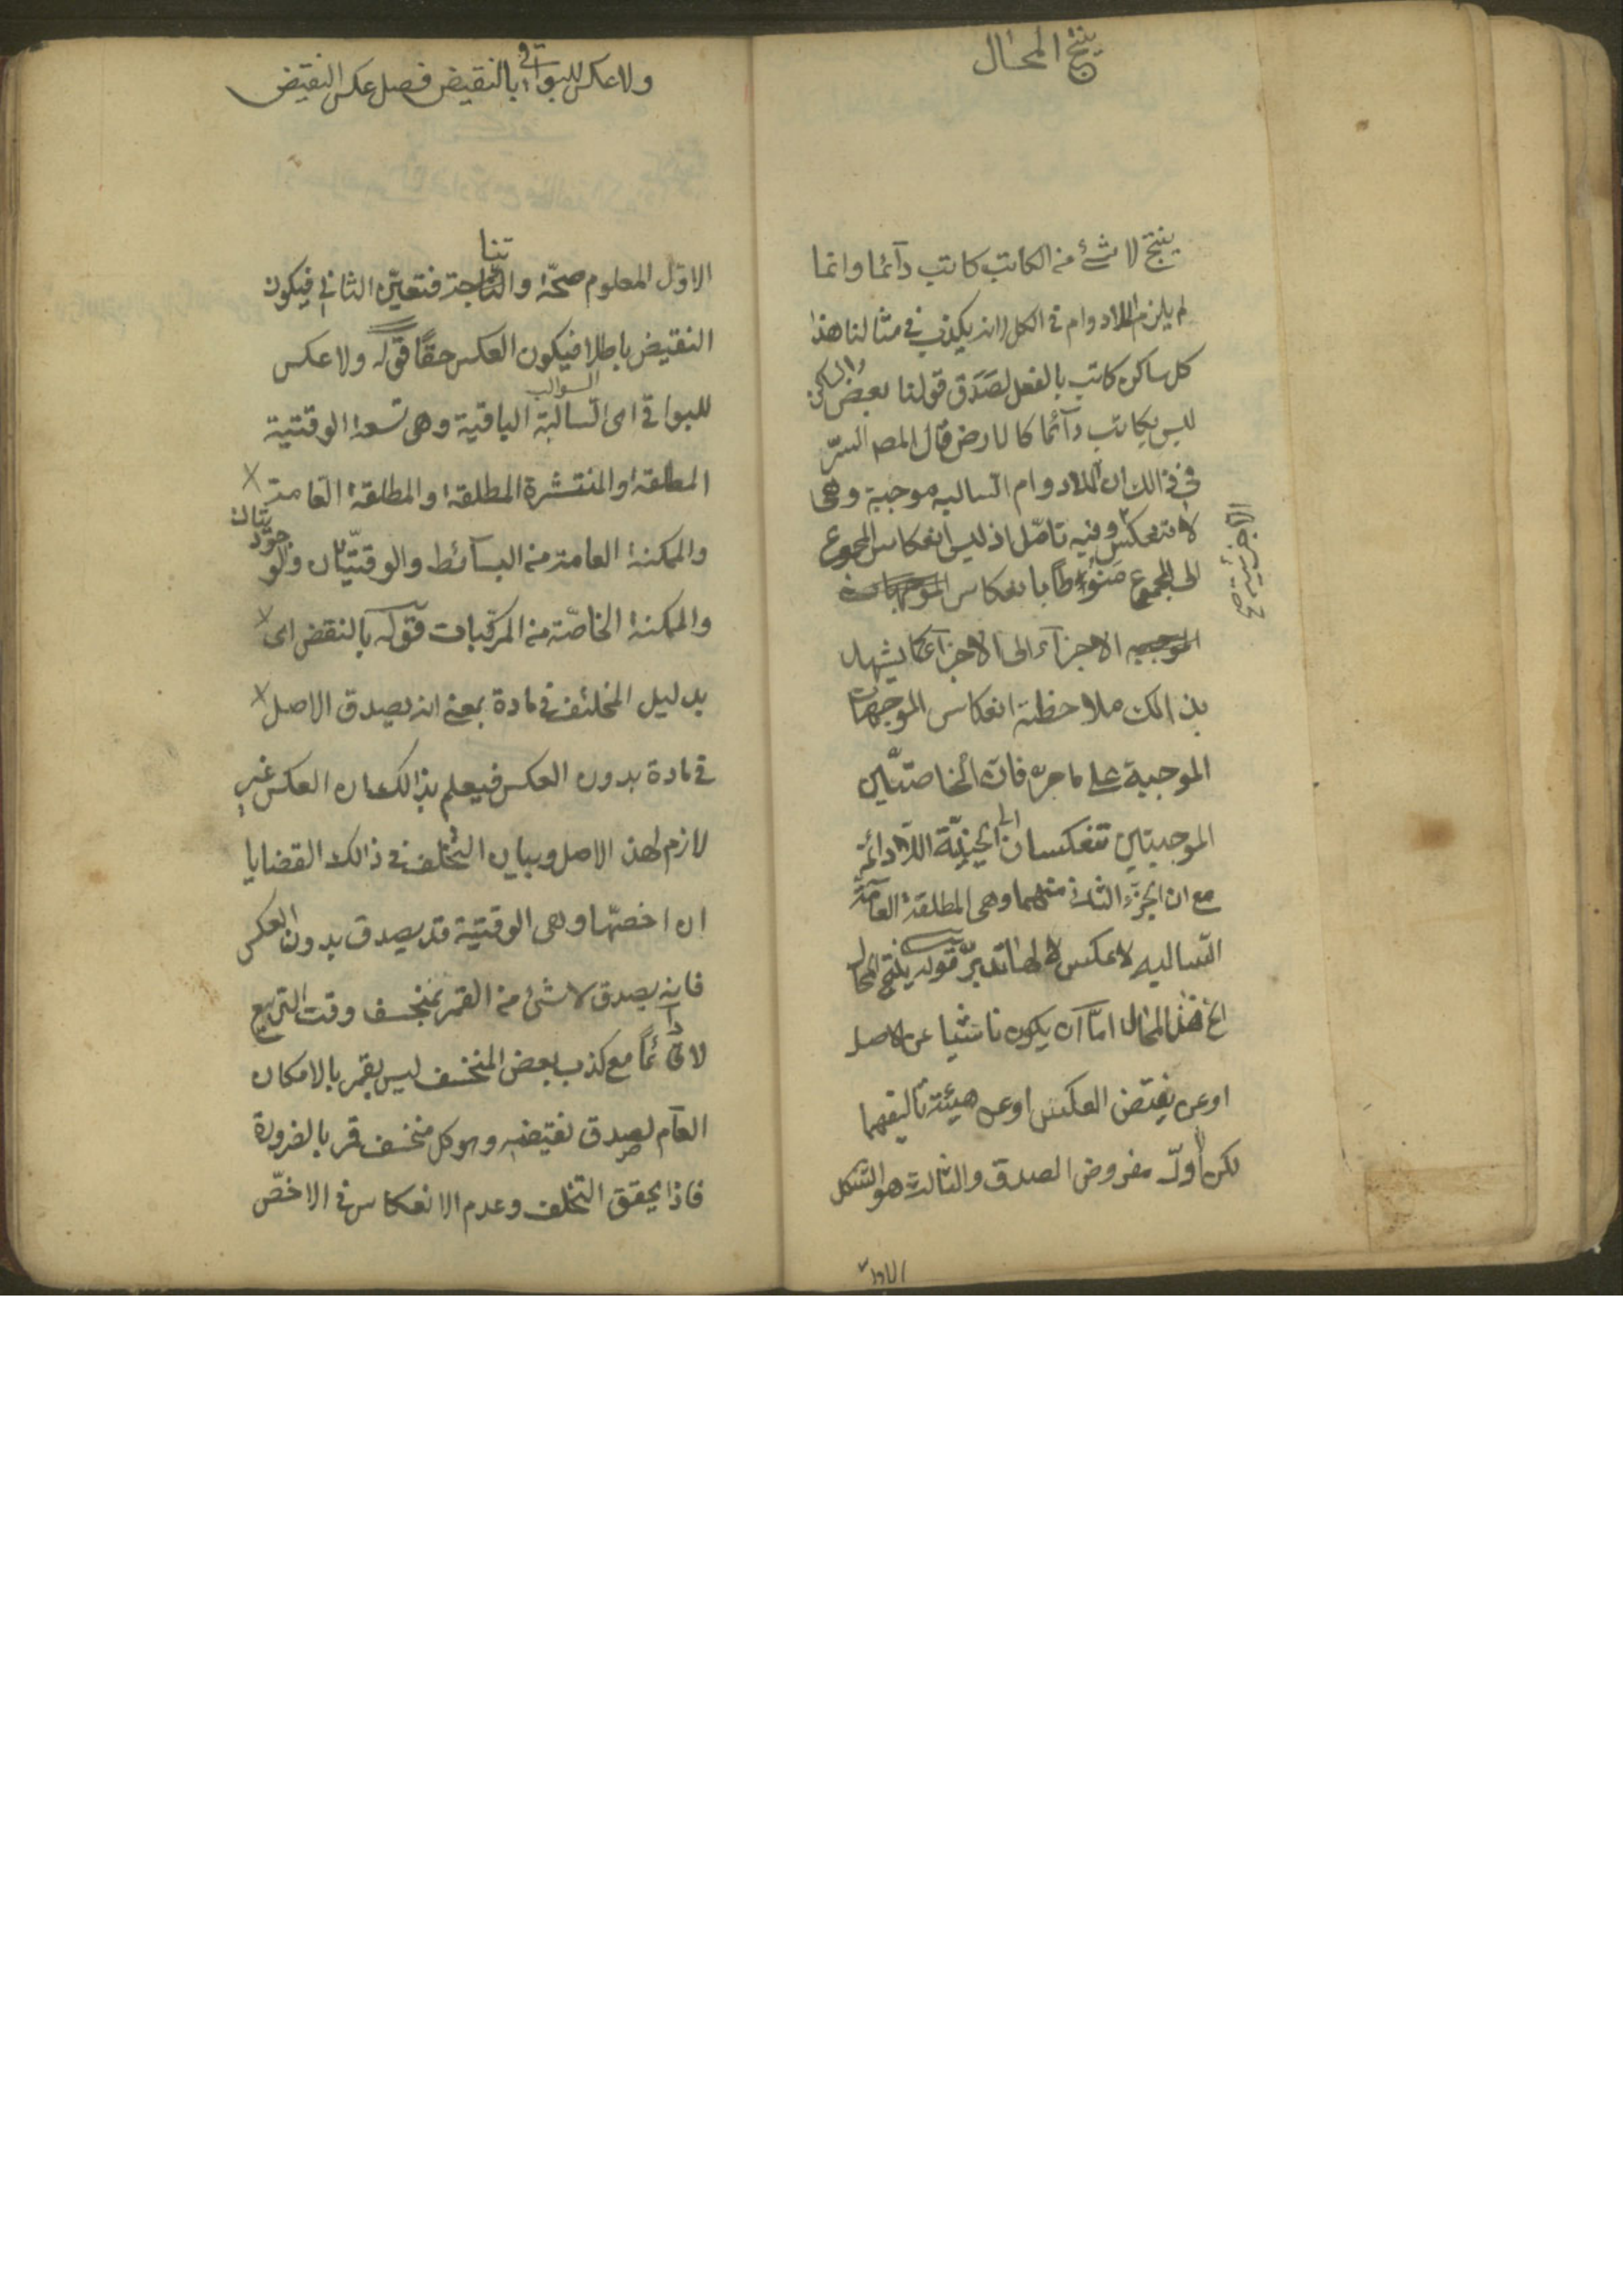 ينتج المحال
ينتج لا شئ من الكاتب كاتب دآئما وانما
لم يلزم اللادوام في الكل لانه يكذب في مثالنا هذا
كل ساكن كاتب بالفعل لصَدَق قولنا بعض الساكن
ليس بكاتب دآئما كالارض قال المص السرّ
في ذالك ان اللادوام السالبه موجبة وهى
لا تنعكس وفيه تأمّل اذ ليس انعكاس المجموع
الا جزئية صح
الى المجموع منوطًا بانعكاس
الاجزآء الى الاجزآء كما يشهد
بذالك ملاحظة انعكاس الموجهات
الموجبة على ما مر فان الخاصتين
الموجبتين تنعكسان الى الحينيّة اللادائمة
مع ان الجزء الثانى منهما وهى المطلقة العامّة
السالبه لا عكس لها فتدبّر قوله ينتج المحال
الخ فهذا المحال امّا ان يكون ناشئا عن الاصل
او عن نقيض العكس او عن هيئة تأليفهما
لكن الاوّل مفروض الصدق والثالث هو الشكل
الاول
ولا عكس للبواقي بالنقيض فصل عكس النقيض
تنا
الاوّل المعلوم صحّة و فتعيّن الثاني فيكون
النقيض باطلا فيكون العكس حقًا قوله ولا عكس
السوالب
للبواقي اى السالبة الباقية وهى تسعة الوقتية
المطلقة والمنتشرة المطلقة والمطلقة العامة
والممكنة العامة من البسآئط والوقتيّتان والوجوديّتان
والممكنة الخاصّة من المركّبات قوله بالنقض اى
بدليل التخلف في مادة بمعنى انه يصدق الاصل
في مادة بدون العكس فيعلم بذالك ان العكس غير
لازم لهذا الاصل وبيان التخلف في ذالك القضايا
ان اخصّها وهى الوقتية قد يصدق بدون العكس
فانه يصدق لا شئ من القمر بمنخسف وقت التربيع
لا دآئماً مع كذب بعض المنخسف ليس بقمر بالامكان
العآم لصدق نقيضه وهو كل منخسف قمر بالضرورة
فاذا تحقق التخلف وعدم الانعكاس في الاخصّ